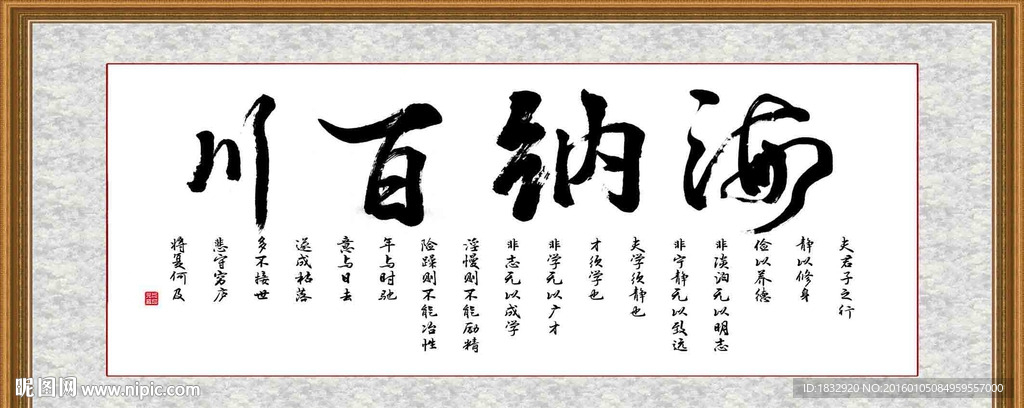 海纳百川
夫君子之行
静以修身
俭以养德
非淡泊无以明志
非宁静无以致远
夫学须静也
才须学也
非学无以广才
非志无以成学
淫慢则不能励精
险躁则不能冶性
年与时驰
意与日去
遂成枯落
多不接世
悲守穷庐
将复何及
昵图网 www.nipic.com
ID:1832920 NO:20160105084959557000